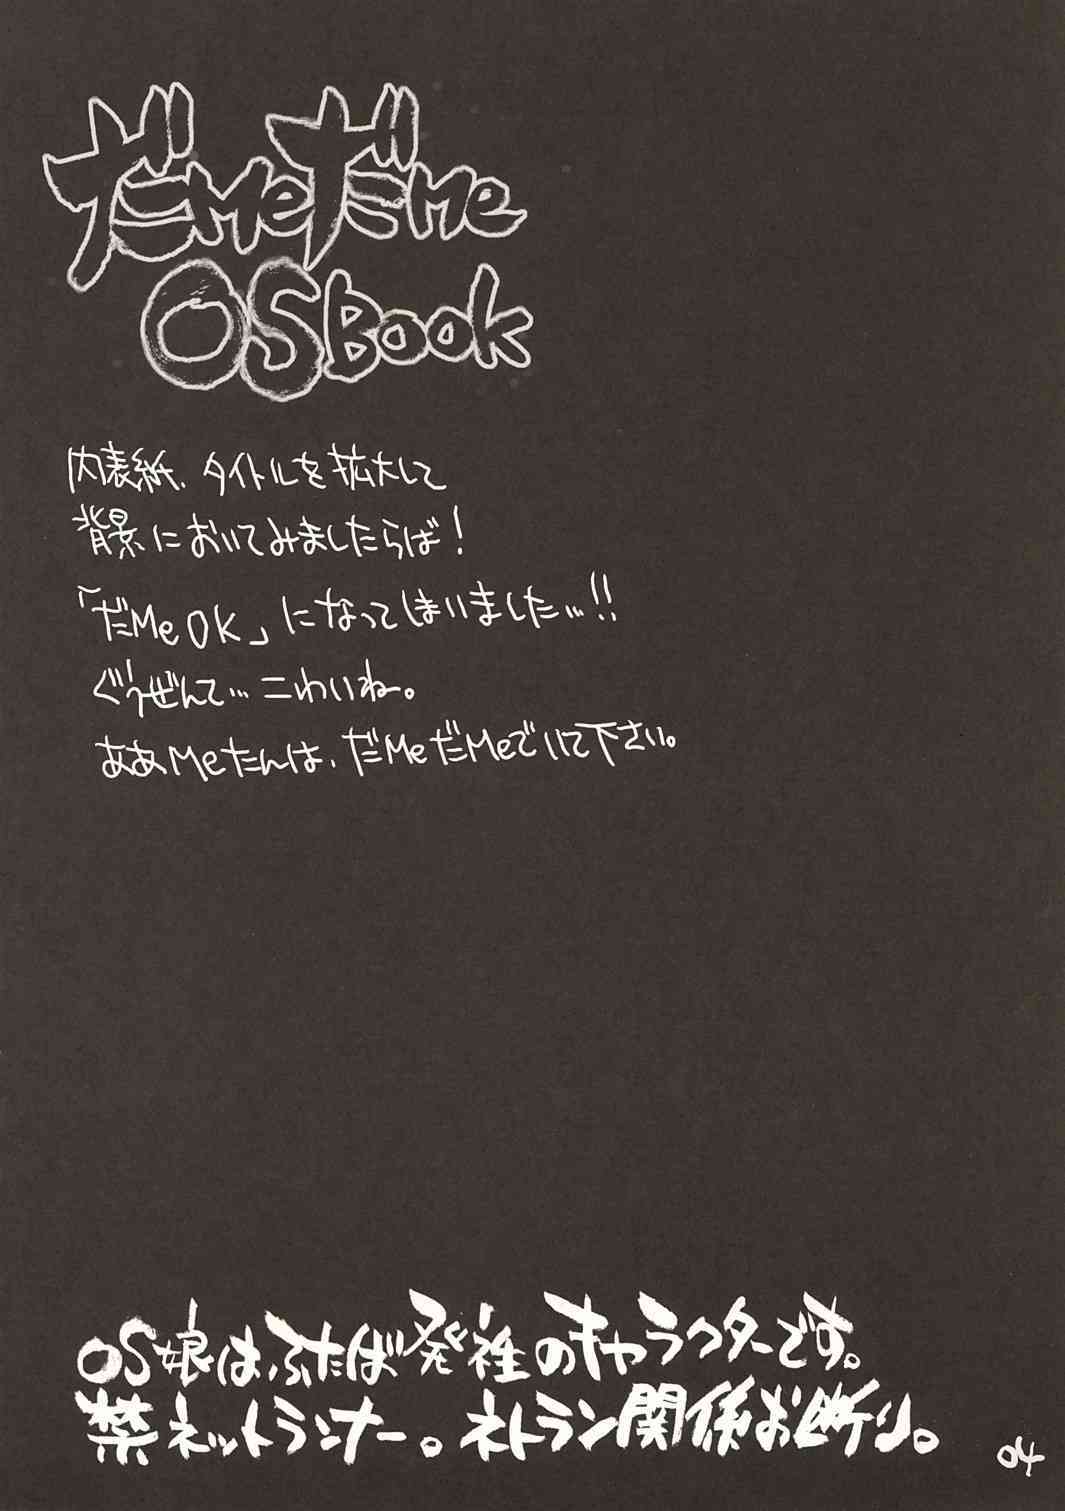 だMeだMe
OSBook
内表紙、タイトルを拡大して
背景においてみましたらば!
「だMe OK」になってしまいました…!!
ぐうぜんて…こわいね。
ああMeたんは、だMeだMeでいて下さい。
OS娘はふたば発祥のキャラクターです。
禁ネットランナー。ネトラン関係お断り。
04